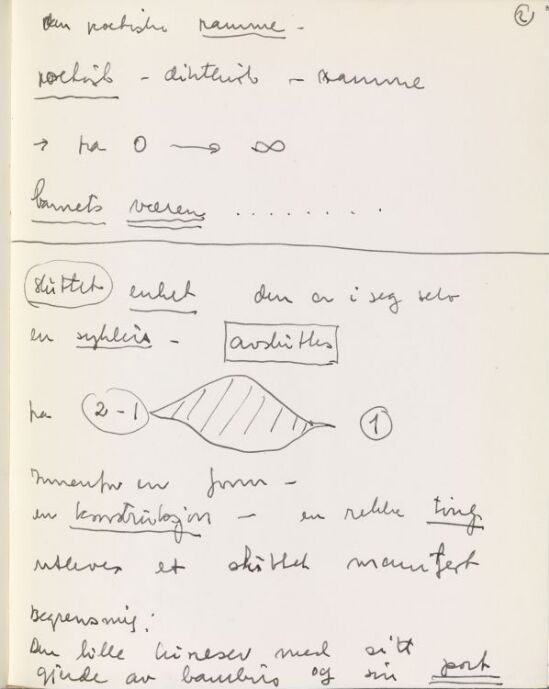 2
den poetiske ramme –
poetisk – dikterisk – ramme
→ fra 0 → ∞
barnets væren . . . . . . . .
sluttet enhet den er i seg selv
en syklus – avsluttes
fra 2-1 1
Innenfor en form –
en konstruksjon – en rekke ting
utleves et sluttet manifest
Begrensning:
Den lille kineser med sitt
gjerde av bambus og sin port